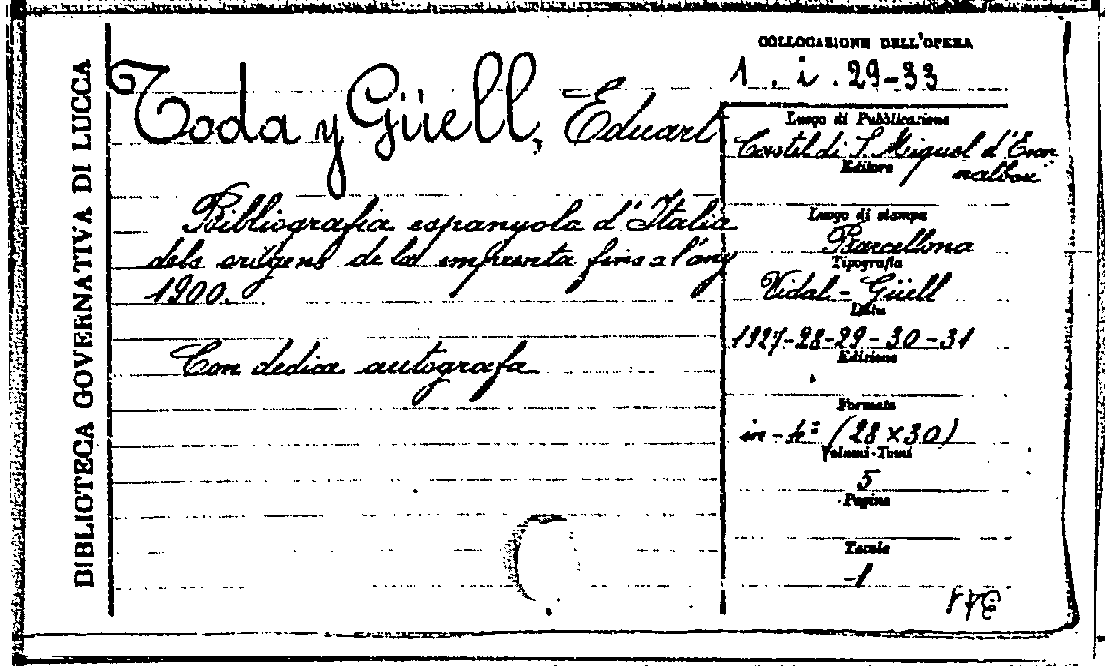 BIBLIOTECA GOVERNATIVA DI LUCCA
Toda y Güell, Eduart
Bibliografia espanyola d'Italia
dels orígens de la emprenta fins a l'any
1900.
Con dedica autografa
COLLOCAZIONE DELL'OPERA
1. i. 29-33
Luogo di Pubblicazione
Castil di S. Miquel d'Escor
nalbou
Editore
Luogo di stampa
Barcellona
Tipografia
Vidal-Güell
Data
1927-28-29-30-31
Edizione
Formato
in-4º (28×30)
Volumi-Tomi
5
Pagine
Tavole
1